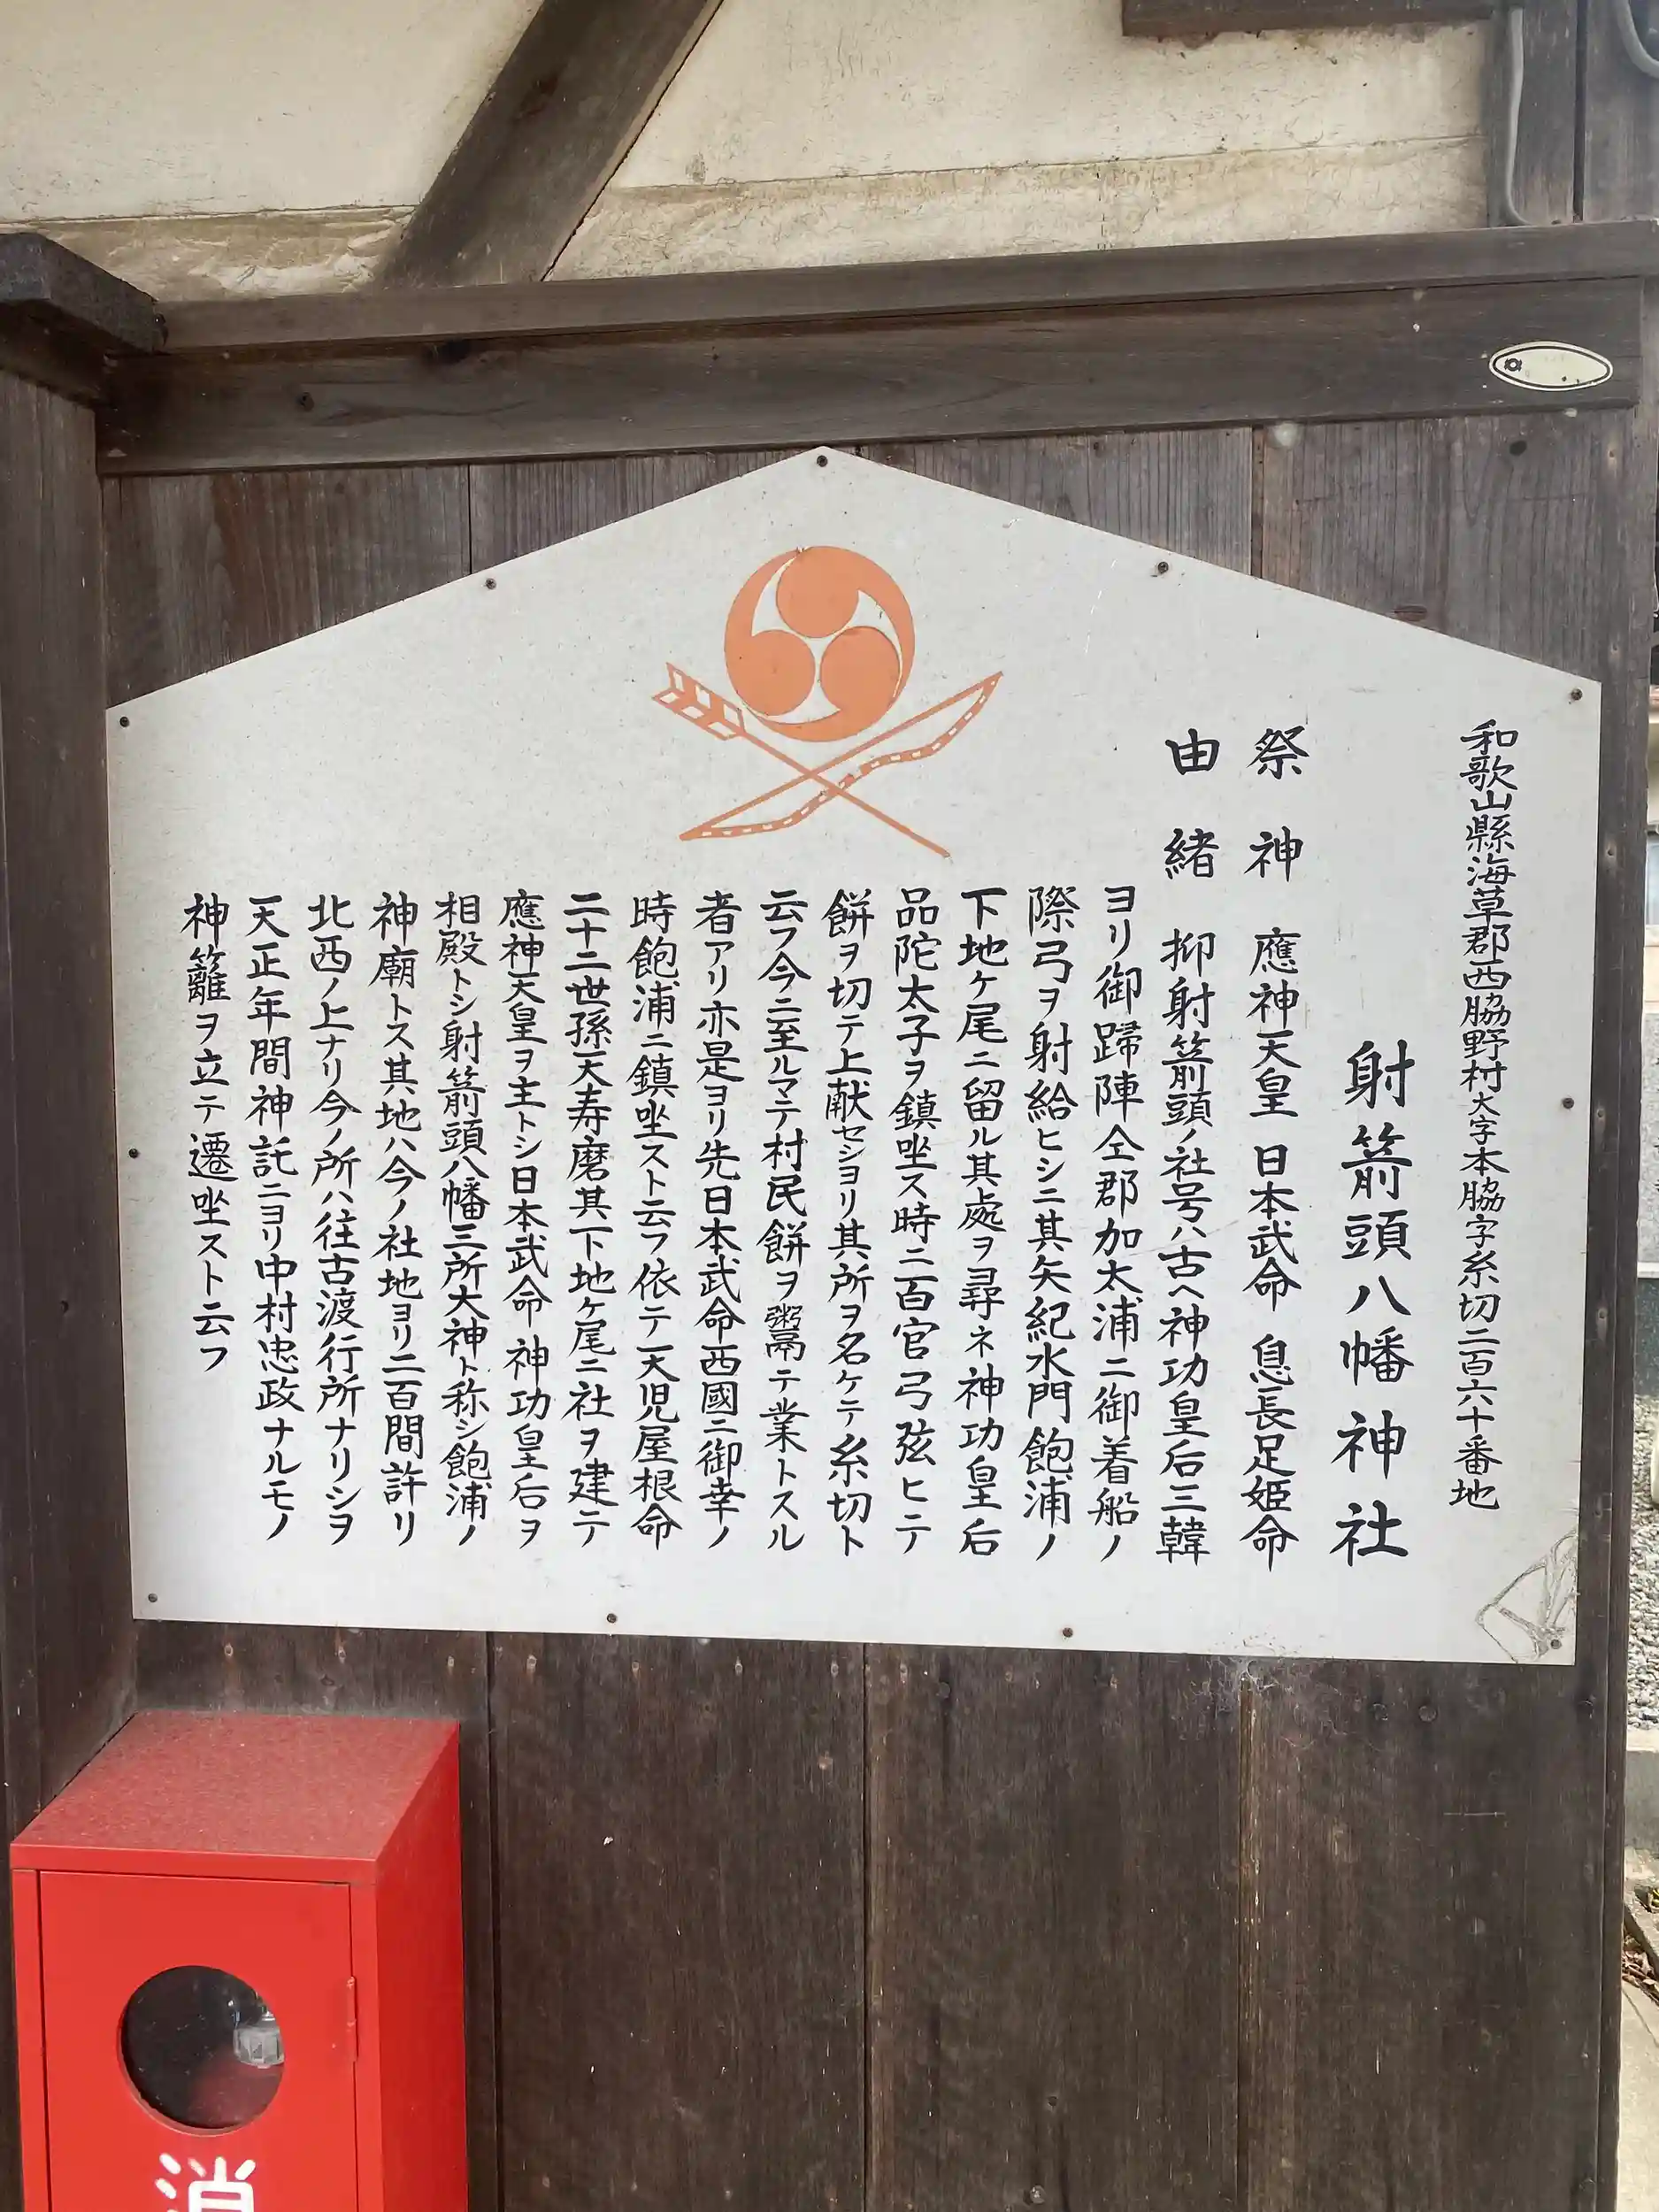 和歌山縣海草郡西脇野村大字本脇字糸切二百六十番地
射箭頭八幡神社
祭神 應神天皇 日本武命 息長足姫命
由緒 抑射箭頭ノ社号ハ古ヘ神功皇后三韓
ヨリ御歸陣仝郡加太浦ニ御着船ノ
際弓ヲ射給ヒシニ其矢紀水門飽浦ノ
下地ケ尾ニ留ル其處ヲ尋ネ神功皇后
品陀太子ヲ鎮坐ス時ニ百官弓弦ヒテ
餅ヲ切テ上献セシヨリ其所ヲ名ケテ糸切ト
云フ今ニ至ルマテ村民餅ヲ鬻テ業トスル
者アリ亦是ヨリ先日本武命西國ニ御幸ノ
時飽浦ニ鎮坐スト云フ依テ天児屋根命
二十二世孫天寿磨其下地ケ尾ニ社ヲ建テ
應神天皇ヲ主トシ日本武命神功皇后ヲ
相殿トシ射箭頭八幡三所大神ト称シ飽浦ノ
神廟トス其地ハ今ノ社地ヨリ二百間許リ
北西ノ上ナリ今ノ所ハ往古渡行所ナリシヲ
天正年間神託ニヨリ中村忠政ナルモノ
神籬ヲ立テ遷坐スト云フ
消